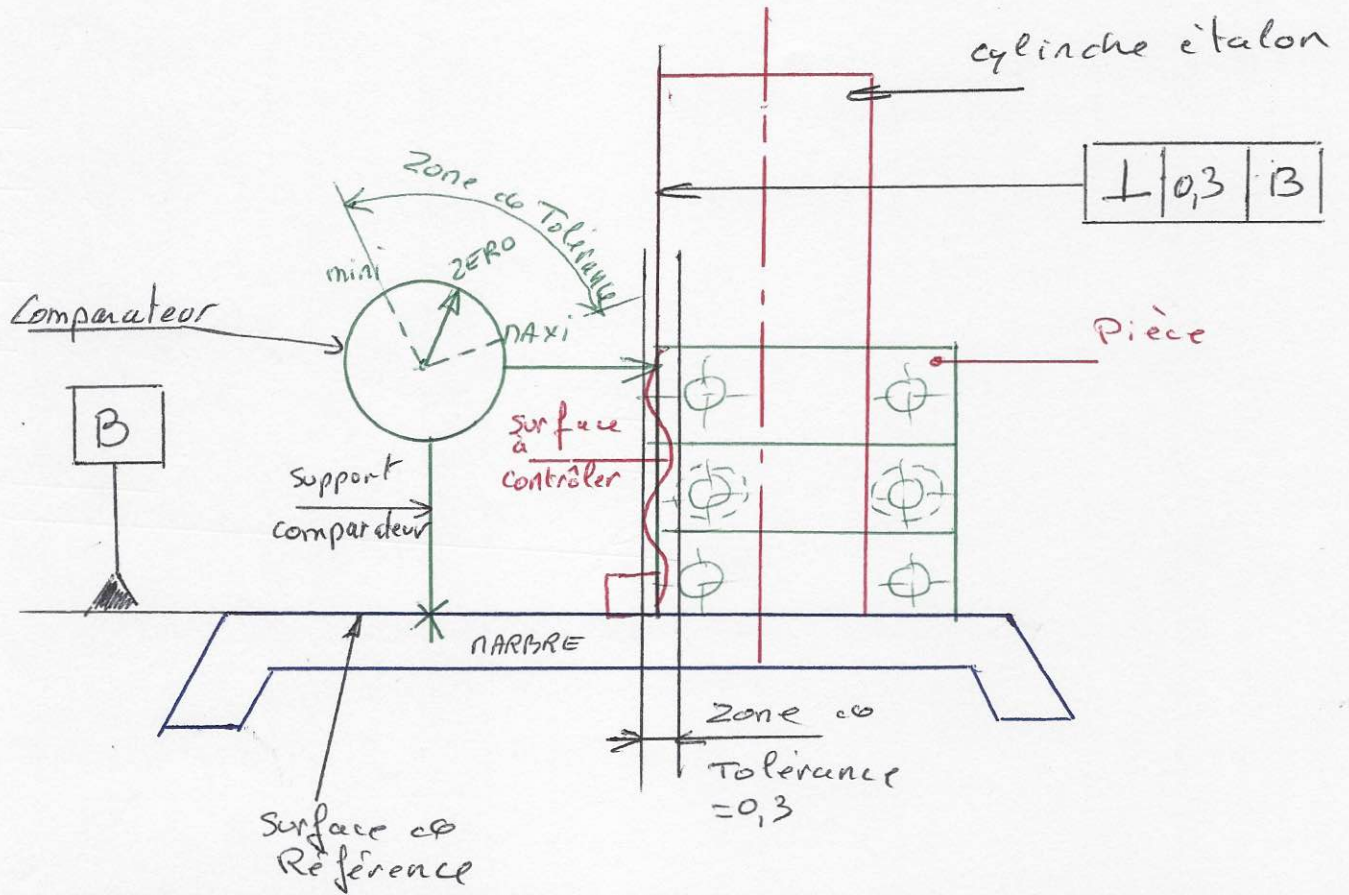 cylindre étalon
⊥ 0,3 B
Zone de Tolérance
mini
ZERO
MAXi
Comparateur
Pièce
B
surface
à
contrôler
support
comparateur
MARBRE
Zone de
Tolérance
=0,3
Surface de
Référence